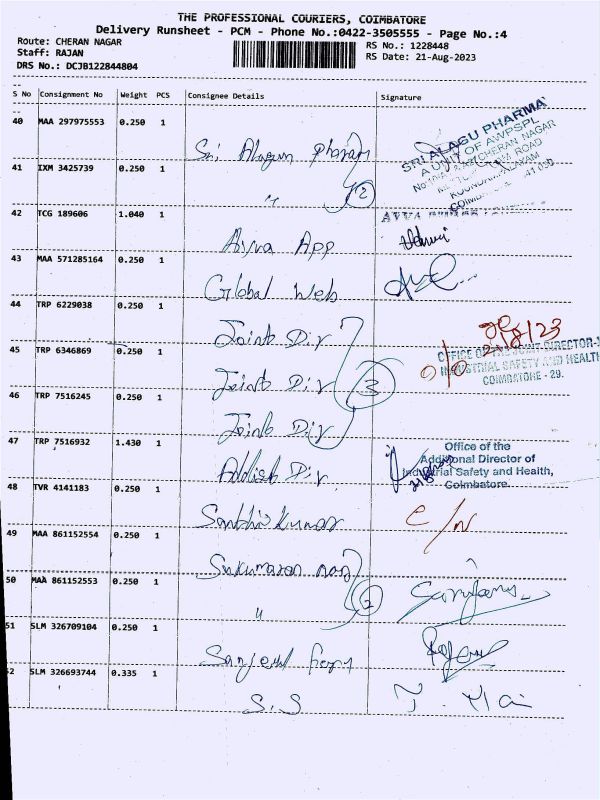 THE PROFESSIONAL COURIERS, COIMBATORE
Delivery Runsheet - PCM - Phone No.:0422-3505555 - Page No.:4
Route: CHERAN NAGAR
RS No.: 1228448
Staff: RAJAN
RS Date: 21-Aug-2023
DRS No.: DCJB122844804
S No Consignment No Weight PCS Consignee Details Signature
40 MAA 297975553 0.250 1
SRI ALAGU PHARMA
A UNIT OF AWPSPL
CHERAN NAGAR
ROAD
KOUNDAMPALAYAM
COIMBATORE - 641 030
Sri Alagun Pharam
41 IXM 3425739 0.250 1
" 2
42 TCG 189606 1.040 1
Ayya App
43 MAA 571285164 0.250 1
Global Web
44 TRP 6229038 0.250 1
Joint Dir
21/8/23
OFFICE OF THE JOINT DIRECTOR-I
INDUSTRIAL SAFETY AND HEALTH
COIMBATORE - 29.
45 TRP 6346869 0.250 1
Joint Dir 3
46 TRP 7516245 0.250 1
Joint Dir
47 TRP 7516932 1.430 1
Office of the
Additional Director of
Industrial Safety and Health,
Coimbatore.
Addish Dir
48 TVR 4141183 0.250 1
Santhiskumar
49 MAA 861152554 0.250 1
Sukumaran nan
50 MAA 861152553 0.250 1
" 2
51 SLM 326709104 0.250 1
52 SLM 326693744 0.335 1
S.S